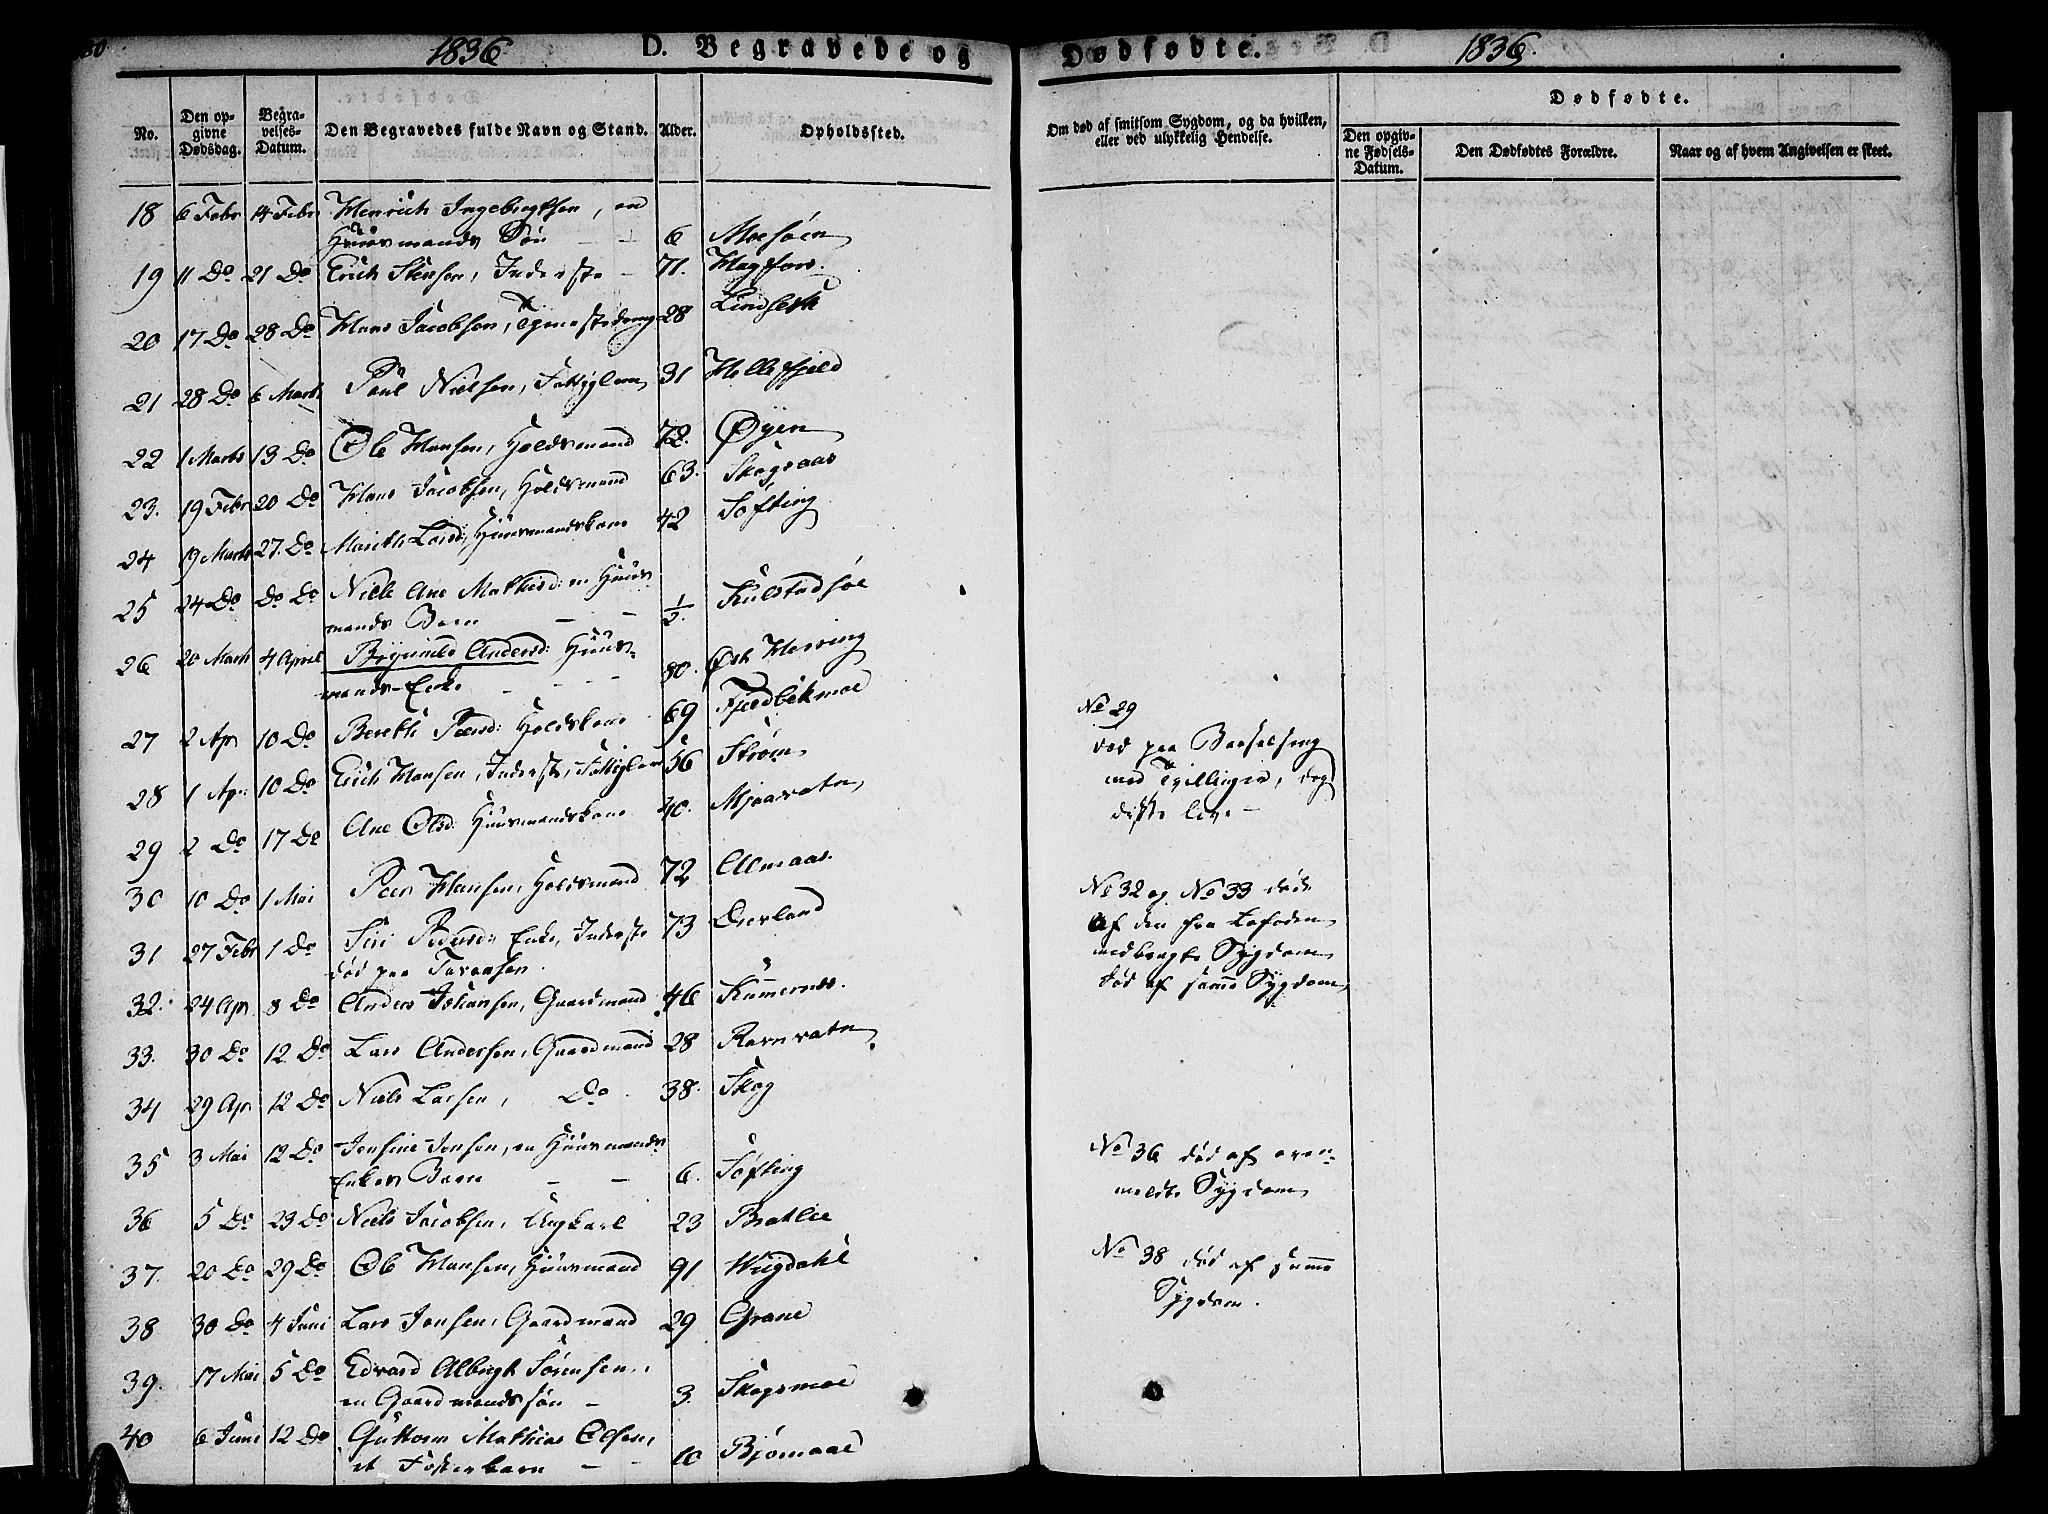 80
1836 D. Begravede og
No.
Den opgivne Dødsdag.
Begravelses-Datum.
Den Begravedes fulde Navn og Stand.
Alder.
Opholdssted.
18 6 Febr 14 Febr Henrich Ingebrigtsen, en
Huusmands Søn - - 6 Moesøen
19 11 Do 21 Do Erich Stensen, Inderste - 71. Hagfors.
20 17 Do 28 Do Hans Jacobsen, Tjenestedreng 28 Lindseth
21 28 Do 6 Marts Paul Nielsen, Fattiglem 31 Hellefjeld
22 1 Marts 13 Do Ole Hansen, Holdsmand 72. Øyen
23. 19 Febr 20 Do Hans Jacobsen, Holdsmand 63. Skogsaas
24 19 Marts 27. Do Mareth Larsd: Huusmandskone 42 Søfting
25 24 Do Do Do Nicle Ane Mathisd: en Huus-
mands Barn - - 1/2. Kulstadsøe
26 20 Marts 4 April Brynnild Andersd: Huus-
mands-Enke - - - - 80. Øst Herring
27 2 Apr 10 Do Bereth Peersd: Holdskone 69 Fjeldbekmoe
28 1 Apr: 10 Do Erich Hansen, Inderste, Fattiglem 56 Strøm
29 2 Do 17 Do Ane Olsd: Huusmandskone 40. Mjaavatn
30 10 Do 1 Mai Peer Hansen, Holdsmand 72 Almaas.
31 27 Febr 1 Do Siri Pedersd: Enke, Inderste 73 Dverland
død paa Tavensen.
32. 24 Apr 8 Do Anders Johansen, Gaardmand 46 Kummernes.
33. 30 Do 12 Do Lars Andersen, Gaardmand 28 Ravnvatn
34 29 Apr 12 Do Niels Larsen, Do. 38. Skog
35 3 Mai 12 Do Jonsine Jonsen, en Huusmands
Enkes Barn - - 6. Søfting
36 5 Do 23 Do Niels Jacobsen, Ungkarl 23 Bratlie
37. 20 Do 29 Do Ole Hansen, Huusmand 91 Wugdahl
38 30 Do 4 Juni Lars Jonsen, Gaardmand 29 Grane
39. 17 Mai 5 Do Edvard Albrigt Sørensen,
en Gaardmandssøn - 3. Skogsmoe
40 6 Juni 12 Do Guttorm Mathias Olsen,
et Fosterbarn - - 10 Bjømaae
Dødfødte. 1836.
Om død af smitsom Sygdom, og da hvilken,
eller ved ulykkelig Hendelse.
Dødfødte.
Den opgivne Fødsels-Datum.
Den Dødfødtes Forældre.
Naar og af hvem Angivelsen er skeet.
No 29
død paa Barselseng
med Tvillinger, dog
disse leve -
No 32 og No 33 døde
af den fra Lofoden
medbragte Sygdom
død af samme Sygdom
No 36 død af oven-
meldte Sygdom
No 38 død af samme
Sygdom.